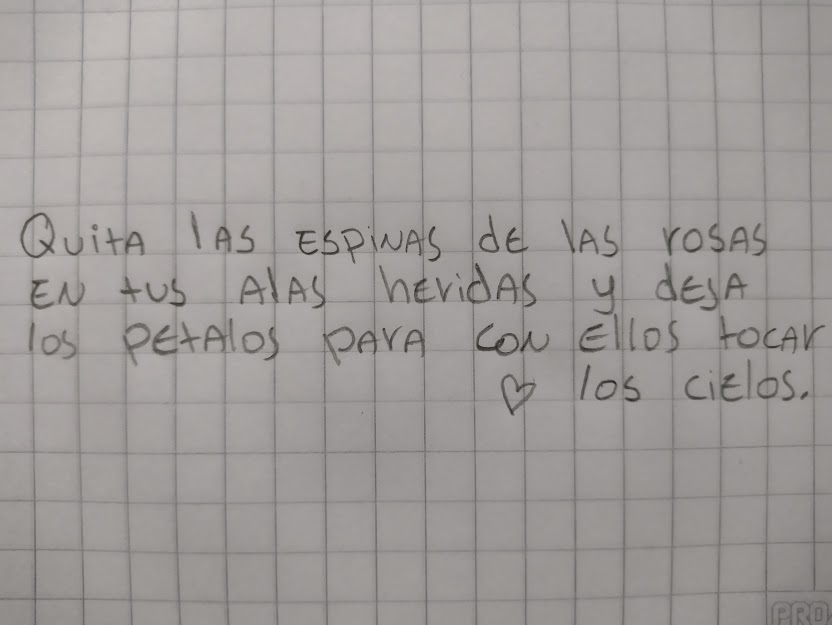 Quita las espinas de las rosas
en tus alas heridas y deja
los petalos para con ellos tocar
♡ los cielos.
PRO